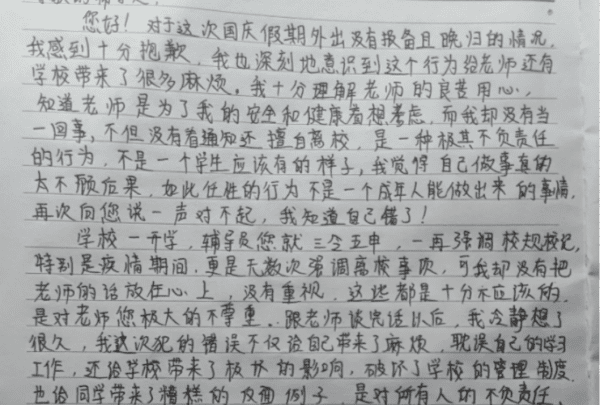 您好！对于这次国庆假期外出没有报备且晚归的情况，
我感到十分抱歉，我也深刻地意识到这个行为给老师还有
学校带来了很多麻烦。我十分理解老师的良苦用心，
知道老师是为了我的安全和健康着想考虑，而我却没有当
一回事，不但没有看通知还擅自离校，是一种极其不负责任
的行为，不是一个学生应该有的样子，我觉得自己做事真的
太不顾后果，如此任性的行为不是一个成年人能做出来的事情，
再次向您说一声对不起，我知道自己错了！
学校一开学，辅导员您就三令五申，一再强调校规校纪，
特别是疫情期间，更是无数次强调离校事项，可我却没有把
老师的话放在心上，没有重视，这些都是十分不应该的，
是对老师您极大的不尊重。跟老师谈完话以后，我冷静想了
很久，我这次犯的错误不仅给自己带来了麻烦，耽误自己的学习
工作，还给学校带来了极坏的影响，破坏了学校的管理制度
也给同学带来了糟糕的反面例子，是对所有人的不负责任，